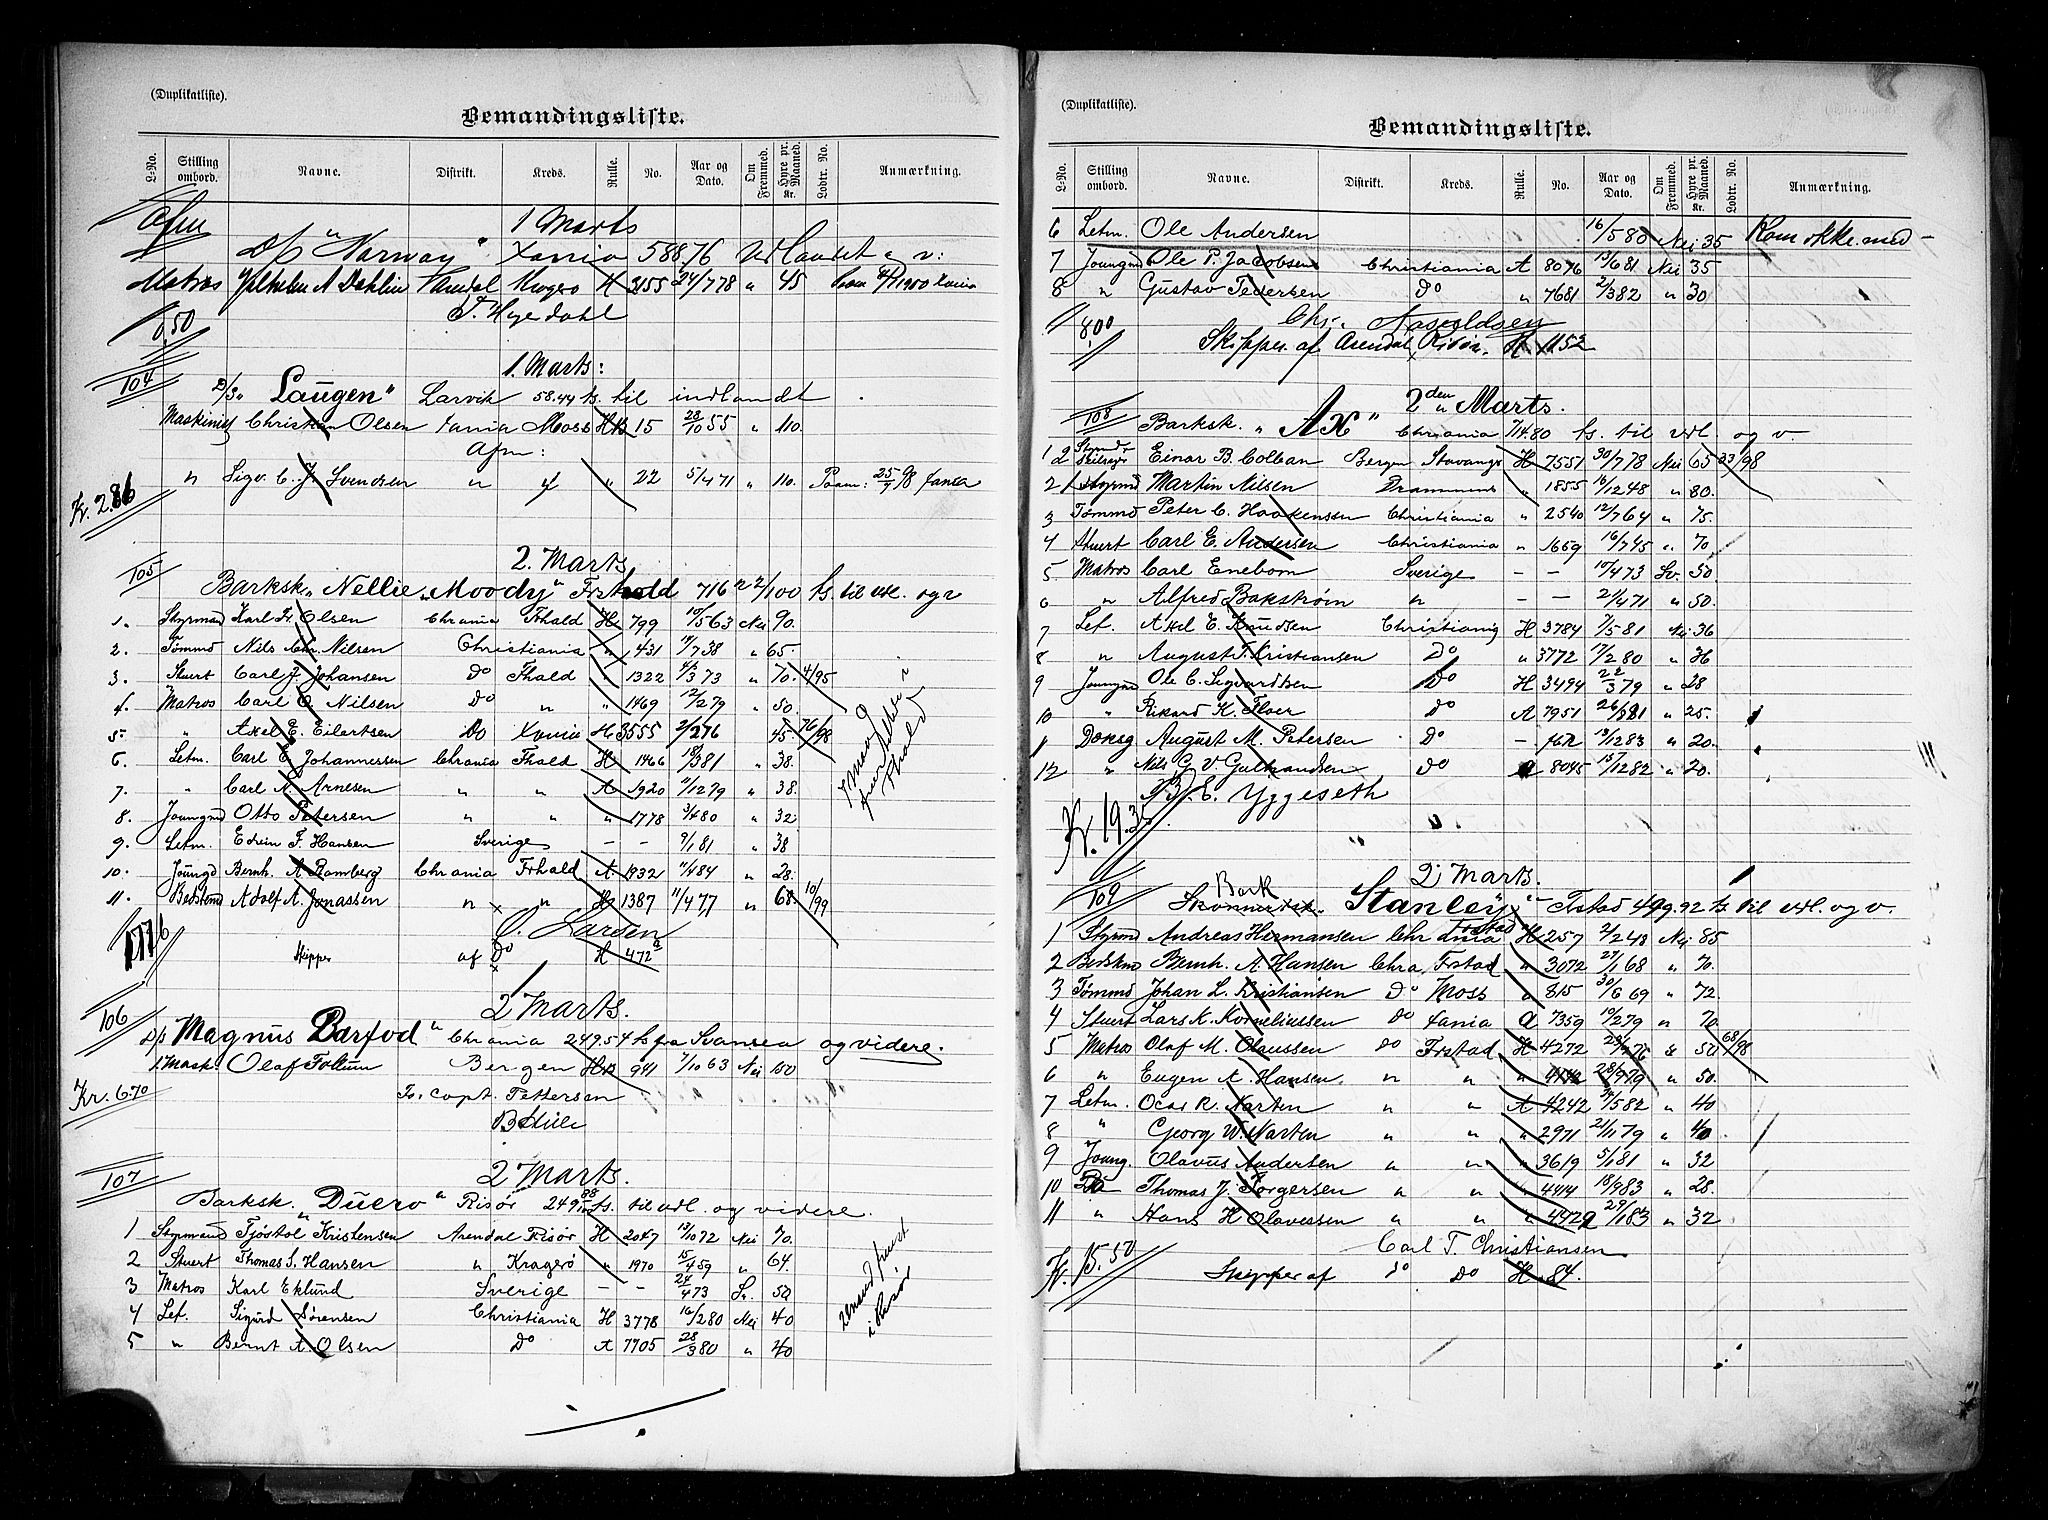 (Duplikatliste).
Bemandingsliste.
L-No. Stilling ombord. Navne. Distrikt. Kreds. Rulle. No. Aar og Dato. Om Fremmed. Hyre pr. Maaned. Kr. Lodtr. No. Anmærkning.
Afm
1 Marts
D/s "Norway" Xania 588,76 Udlandet o v:
Matros A Dahlin Kragerø H 3155 24/778 " 45
T. Hyerdahl
0,50
1. Marts:
104
D/S " Laugen" Larvik 58.44 ts. til indlandet
Maskinist Christian Olsen Xania Moss HB 15 28/10 55 " 110.
Afm:
" Sigv. C. J. Svendsen " " " 22 5/471 " 110. 25/7 98
Kr. 2.86
2. Marts
105
Barksk. "Nellie Moody" Frhald 716 22/100 ts. til udl. og v
1. Styrmand Karl Fr. Olsen Chrania Frhald H 799 10/563 Nei 90.
2. Tømmd Nils Chr. Nilsen Christiania " 431 11/738 " 65.
3. Stuert Carl J. Johansen Do Fhald " 1322 4/373 " 70. 4/95
4. Matros Carl O. Nilsen Do " " 1469 12/279 " 50.
5 " Axel E. Eilertsen Do Xania H 3555 2/276 45 76/98
6. Letm. Carl E. Johannessen Chrania Fhald H 1466 18/381 " 38.
7. " Carl A. Arnesen " " A 1920 11/1279 " 38.
8. Joungmd Otto Petersen " " " 1778 3/480 " 32
9. Letm. Edvin F. Hansen Sverige - - 9/181 " 38
10. Joungd Bernh. A. Ramberg Chrania Frhald A 1932 11/484 " 28.
11. Bedstemd Adolf A. Jonassen " " H 1387 11/477 " 68. 10/99
O. Larsen
17.16
Skipper af Do H 472
2 Marts.
106
D/s Magnus Barfod" Chrania 249.54 ts fra Svansea og videre.
1. Mask. Olaf Foltum Bergen HB 941 7/10 63 Nei 150
Kr. 6.70
Fr. Capt. Pettersen
2 Marts.
107
Barksk. "Duero" Risør 249 88/100 ts. til udl. og videre.
1 Styrmand Tjøstol Kristensen Arendal Risør H 2047 13/10 72 Nei 70.
2 Stuert Thomas S. Hansen " Kragerø " 1970 15/459 " 64.
3 Matros Karl Eklund Sverige - - 24/473 Sv. 50
4 Lef. Sigurd Sørensen Christiania H 3778 16/280 Nei 40
5 " Bernt A. Olsen Do A 7705 28/380 " 40
i Risør
(Duplikatliste).
Bemandingsliste.
L-No. Stilling ombord. Navne. Distrikt. Kreds. Rulle. No. Aar og Dato. Om Fremmed. Hyre pr. Maaned. Kr. Lodtr. No. Anmærkning.
6 Letm. Ole Andersen 16/580 Nei 35 Kom ikke med -
7 Joungmd Ole P. Jacobsen Christiania A 8076 13/681 Nei 35
8 " Gustav Pedersen Do " 7681 2/382 " 30
Chr. Aasoldsen
8,00
Skipper af Arendal, Risør. H 1152
2den Marts.
108
Barksk. "Ax" Chrania 714.80 ts. til udl. og v.
1 2 Styrmd Seilmager Einar B. Colban Bergen Stavanger H 7551 30/778 Nei 65 33/98
2 1 Styrmd Martin Nilsen Drammens " 1855 16/1248 " 80.
3 Tømmd Peter C. Haakenssen Christiania " 2540 12/764 " 75.
4 Stuert Carl E. Andersen Christiania " 1669 16/745 " 70
5 Matros Carl Enebom Sverige - - 10/473 Sv. 50
6 " Alfred Bakstrøm " - - 21/471 " 50.
7 Lef. Axel E. Knudsen Christiania H 3784 7/581 Nei 36
8 " August T. Kristiansen Do " 3772 17/280 " 36
9 Joungmd Ole C. Sigvardsen Do H 3494 22/379 " 28
10 " Rikard H. Floer Do A 7951 26/381 " 25.
11 Dæksg August M. Petersen Do - 13/1283 " 20.
12 " Nils G V Gulbrandsen Do a 8045 15/1282 " 20.
B. E. Yggeseth
Kr. 19.35
2 Marts.
109
Bark
Skonnertsk. "Stanley" Fstad 499.92 ts til udl. og v.
1 Styrmd Andreas Hermansen Chrania Fstad H 257 2/243 Nei 85
2 Bedstmd Bernh. A. Hansen Chra, Frstad " 3072 27/168 " 70.
3 Tømmd Johan L. Kristiansen Do Moss " 815 30/6 69 " 72
4 Stuert Lars K. Korneliussen Do Xania a 7359 19/279 " 70
5 Matros Olaf M. Olaussen Do Frstad H 4272 23/276 " 50 68/98
6 " Eugen A. Hansen. " " " 4142 28/979 " 50.
7 Letm. Oscar R. Narten " " A 4242 /582 " 40
8 " Georg W. Narten " " " 2971 21/179 " 40
9 Joung. Olavus Andersen " " " 3619 5/181 " 32
10 Do Thomas J. Torgersen " " " 4414 18/983 " 28.
11 " Hans H Olavessen " " " 4429 29/183 " 32
Carl T. Christiansen
Kr. 15.50
Skipper af Do Do H. 84.